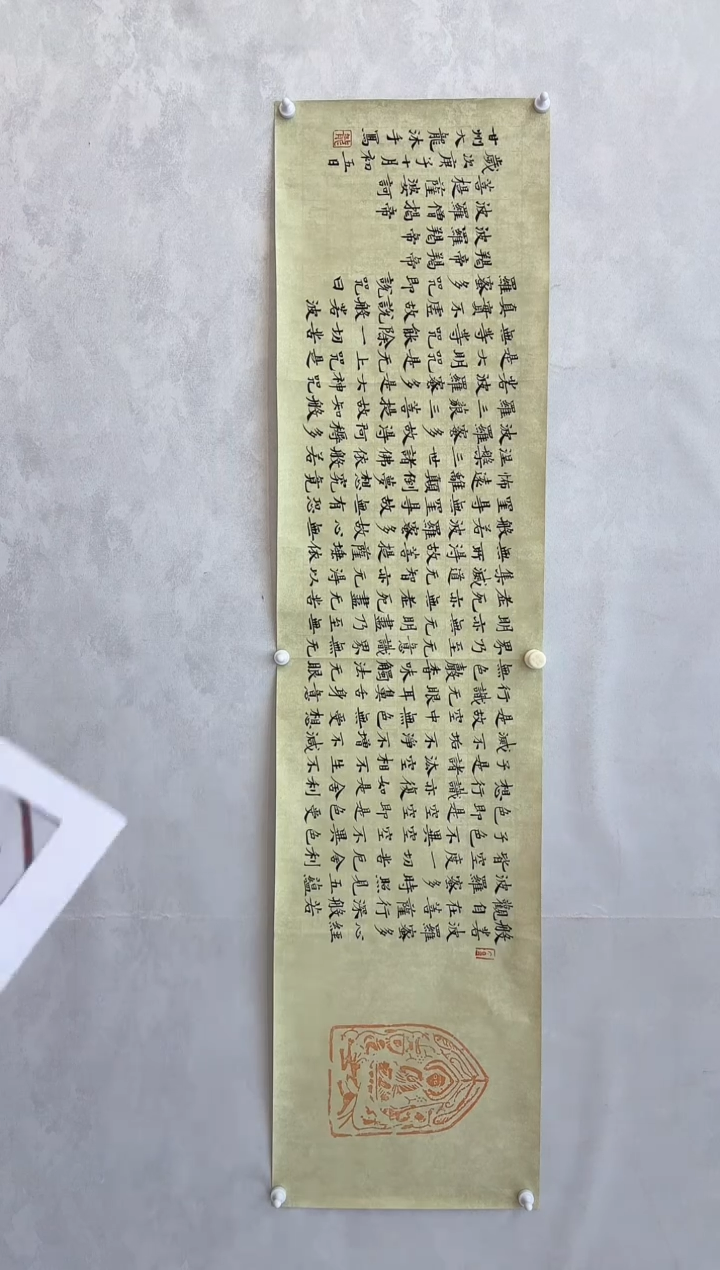 般若波羅蜜多心經
觀自在菩薩行深般若
波羅蜜多時照見五蘊
皆空度一切苦厄舍利
子色不異空空不異色
色即是空空即是色受
想行識亦復如是舍利
子是諸法空相不生不
滅不垢不淨不增不減
是故空中無色無受想
行識无眼耳鼻舌身意
無色聲香味觸法无眼
界乃至无意識界無无
明亦無无明盡乃至無
老死亦无老死盡无苦
集滅道無智亦无得以
無所得故菩提薩埵依
般若波羅蜜多故心無
罣礙無罣礙故無有恐
怖遠離顛倒夢想究竟
涅槃三世諸佛依般若
波羅蜜多故得阿耨多
羅三藐三菩提故知般
若波羅蜜多是大神咒
是大明咒是無上咒是
無等等咒能除一切苦
真實不虛故說般若波
羅蜜多咒即說咒曰
羯帝羯帝
波羅羯帝
波羅僧揭帝
菩提薩婆訶
歲次庚子十月初五日
甘州大龍沐手寫
龍